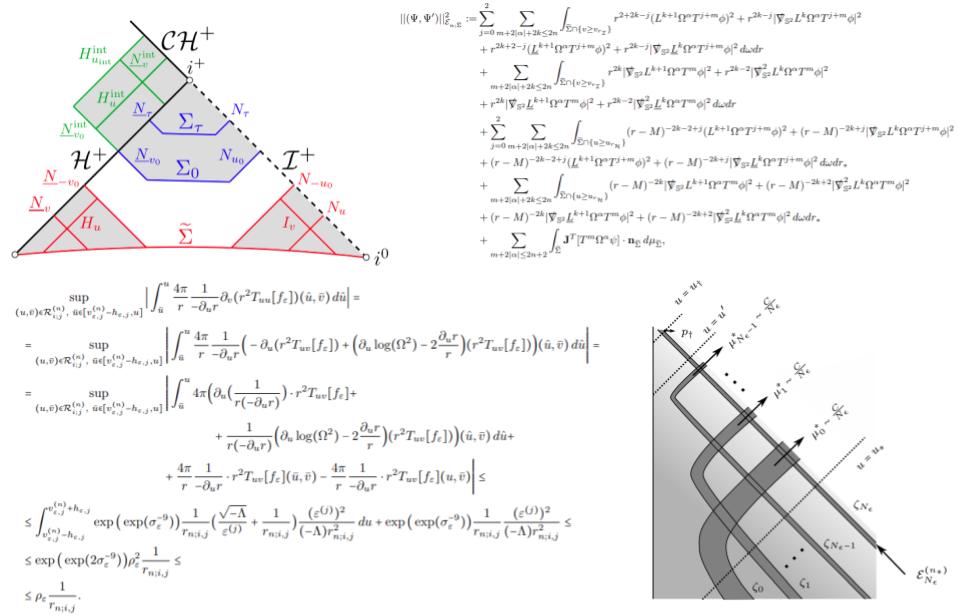 𝒞ℋ⁺
H^{int}_{u_{int}}
N̲^{int}_v
i⁺
H^{int}_u
N̲^{int}_{v_0}
N̲_τ
Σ_τ
N_τ
ℋ⁺
N̲_{v_0}
Σ_0
N_{u_0}
ℐ⁺
N̲_{-v_0}
N_{-u_0}
N̲_v
H_u
I_v
N_u
Σ̃
i⁰
||(Ψ, Ψ′)||²_{ℰ_{n;Σ̃}} := ∑_{j=0}^{2} ∑_{m+2|α|+2k≤2n} ∫_{Σ̃∩{v≥v_{r_ℐ}}} r^{2+2k-j}(L^{k+1}Ω^αT^{j+m}ϕ)² + r^{2k-j}|∇̸_{𝕊²}L^kΩ^αT^{j+m}ϕ|²
+ r^{2k+2-j}(L̲^{k+1}Ω^αT^{j+m}ϕ)² + r^{2k-j}|∇̸_{𝕊²}L̲^kΩ^αT^{j+m}ϕ|² dωdr
+ ∑_{m+2|α|+2k≤2n} ∫_{Σ̃∩{v≥v_{r_ℐ}}} r^{2k}|∇̸_{𝕊²}L^{k+1}Ω^αT^mϕ|² + r^{2k-2}|∇̸²_{𝕊²}L^kΩ^αT^mϕ|²
+ r^{2k}|∇̸_{𝕊²}L̲^{k+1}Ω^αT^mϕ|² + r^{2k-2}|∇̸²_{𝕊²}L̲^kΩ^αT^mϕ|² dωdr
+ ∑_{j=0}^{2} ∑_{m+2|α|+2k≤2n} ∫_{Σ̃∩{u≥u_{r_ℋ}}} (r − M)^{-2k-2+j}(L^{k+1}Ω^αT^{j+m}ϕ)² + (r − M)^{-2k+j}|∇̸_{𝕊²}L^kΩ^αT^{j+m}ϕ|²
+ (r − M)^{-2k-2+j}(L̲^{k+1}Ω^αT^{j+m}ϕ)² + (r − M)^{-2k+j}|∇̸_{𝕊²}L̲^kΩ^αT^{j+m}ϕ|² dωdr_*
+ ∑_{m+2|α|+2k≤2n} ∫_{Σ̃∩{u≥u_{r_ℋ}}} (r − M)^{-2k}|∇̸_{𝕊²}L^{k+1}Ω^αT^mϕ|² + (r − M)^{-2k+2}|∇̸²_{𝕊²}L^kΩ^αT^mϕ|²
+ (r − M)^{-2k}|∇̸_{𝕊²}L̲^{k+1}Ω^αT^mϕ|² + (r − M)^{-2k+2}|∇̸²_{𝕊²}L̲^kΩ^αT^mϕ|² dωdr_*
+ ∑_{m+2|α|≤2n+2} ∫_{Σ̃} J^T[T^mΩ^αψ] · n_{Σ̃} dμ_{Σ̃},
sup_{(u,v̄)∈ℛ^{(n)}_{i;j}, ū∈[v^{(n)}_{ε,j}−h_{ε,j},u]} |∫_ū^u (4π/r) (1/(−∂_u r)) ∂_v(r²T_{uu}[f_ε])(û, v̄) dû| =
= sup_{(u,v̄)∈ℛ^{(n)}_{i;j}, ū∈[v^{(n)}_{ε,j}−h_{ε,j},u]} |∫_ū^u (4π/r) (1/(−∂_u r)) (−∂_u(r²T_{uv}[f_ε]) + (∂_u log(Ω²) − 2 (∂_u r/r))(r²T_{uv}[f_ε]))(û, v̄) dû| =
= sup_{(u,v̄)∈ℛ^{(n)}_{i;j}, ū∈[v^{(n)}_{ε,j}−h_{ε,j},u]} |∫_ū^u 4π(∂_u(1/(r(−∂_u r))) · r²T_{uv}[f_ε]+
+ (1/(r(−∂_u r)))(∂_u log(Ω²) − 2 (∂_u r/r))(r²T_{uv}[f_ε]))(û, v̄) dû+
+ (4π/r) (1/(−∂_u r)) · r²T_{uv}[f_ε](ū, v̄) − (4π/r) (1/(−∂_u r)) · r²T_{uv}[f_ε](u, v̄)| ≤
≤ ∫_{v^{(n)}_{ε,j}−h_{ε,j}}^{v^{(n)}_{ε,j}+h_{ε,j}} exp(exp(σ_ε^{-9})) (1/r_{n;i,j}) (√−Λ/ε^{(j)} + 1/r_{n;i,j}) ((ε^{(j)})²/((−Λ)r²_{n;i,j})) du + exp(exp(σ_ε^{-9})) (1/r_{n;i,j}) ((ε^{(j)})²/((−Λ)r²_{n;i,j})) ≤
≤ exp(exp(2σ_ε^{-9})) ρ_ε² (1/r_{n;i,j}) ≤
≤ ρ_ε (1/r_{n;i,j}).
u = u_†
p_†
u = u′
μ*_{N_ϵ−1} ∼ C/N_ϵ
μ*_1 ∼ C/N_ϵ
μ*_0 ∼ C/N_ϵ
u = u_*
ζ_{N_ϵ}
ζ_{N_ϵ−1}
ζ_0
ζ_1
ℰ^{(n_*)}_{N_ϵ}